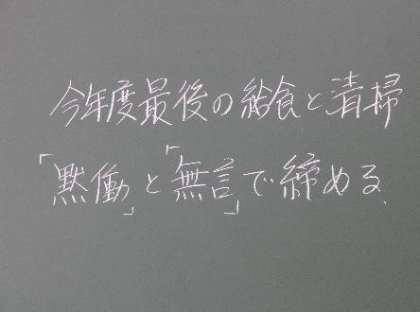 今年度最後の給食と清掃
「黙働」と「無言」で締める.